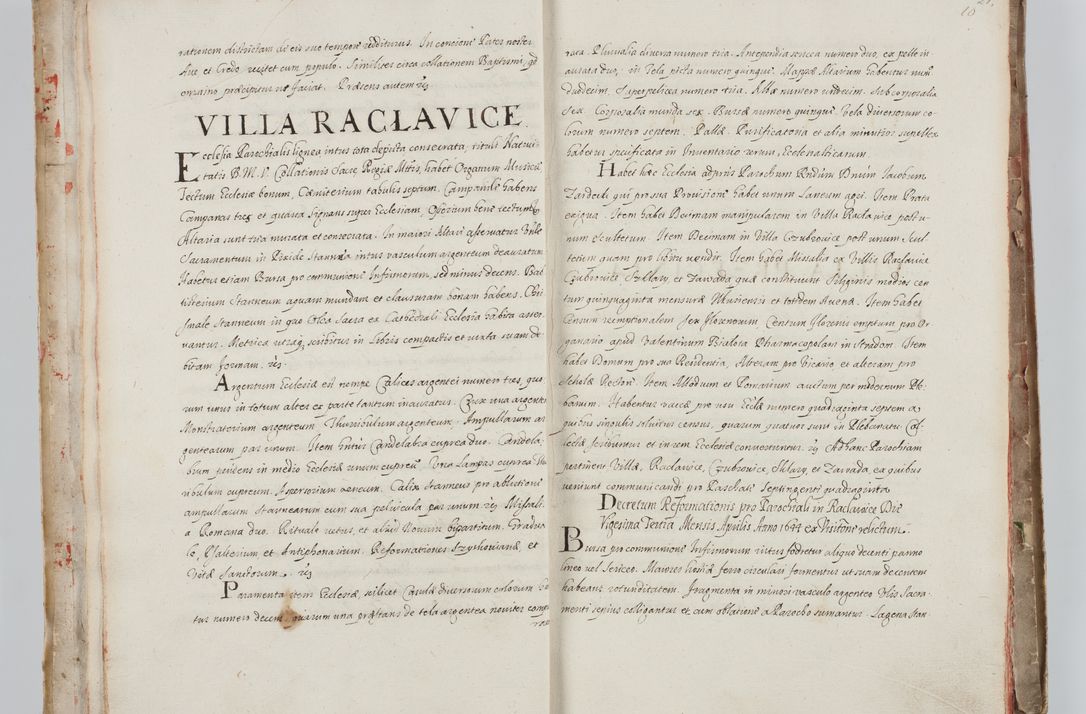 rationem districtam de eis suo tempore redditurus. In concione Pater noster
Ave et Credo recitet cum populo. Similiter circa collationem Baptismi, qd
omnino præcipitur ut faciat. Præsens autem
VILLA RACLAVICE.
Ecclesia Parochialis lignea intus tota depicta consecrata, tituli Nativi
tatis B. M. V. Collationis Sacræ Regiæ Mttis, habet Organum Musicum
Tectum Ecclesiæ bonum, Cæmiterium tabulis septum. Campanile habens
Campanas tres et quarta signans super Ecclesiam,
Altaria sunt tria murata et consecrata. In maiori Altari asservatur Vnble
Sacramentum in Pixide stannea intus vasculum argenteum deauratum
Habetur etiam Bursa pro communione Infirmorum, sed minus decens. Bap
tisterium stanneum aquam mundam et clausuram bonam habens. Chris
male stanneum in quo Olea Sacra ex Cathedrali Ecclesia habita asser
vantur. Metrica utraq scribitur in Libris compactis et iuxta suam de
bitam formam.
Argentum Ecclesiæ est nempe Calices argentei numero tres, quo
rum unus in totum alter ex parte tantum inauratus. Crux una argentea
Monstratorium argenteum. Thuribulum argenteum. Ampullarum ar
gentearum par unum. Item Candelabra cuprea duo. Candela,
brum pendens in medio Ecclesiæ unum cupreum. Una Lampas cuprea Thu
ribulum cupreum. Aspersorium æneum. Calix stanneus pro ablutione
ampullarum stannearum cum sua pelvicula par unum. Missali
a Romana duo. Rituale vetus et aliud Novum bipartitum. Gradua
le, Psalterium et Antiphonarium. Reformationes Szyskovianæ, et
Vitæ Sanctorum.
Paramenta item Ecclesiæ, scilicet Casulæ diversorum colorum
tur numero decem, quarum una præstans de tela argentea noviter comp
rata
10 21.
rata. Pluvialia diversa numero tria. Antependia sericea numero duo, ex pelle in
aurata duo, in Tela picta numero quinque. Mappæ Altarium habentur num
duodecim. Superpelicea numero tria. Albæ numero undecim. Subcorporalia
sex. Corporalia munda sex. Bursæ numero quinque. Vela diversorum co
lorum numero septem. Pallæ. Purificatoria et alia minutior supellex
habetur specificata in Inventario rerum Ecclesiasticarum.
Habet hæc Ecclesia ad præs Parochum Rndum Dnum Iacobum
Zardecki qui pro sua Provisione habet unum Laneum agri. Item Prata
exigua. Item habet Decimam manipularem in Villa Raclavice post u-
num Scultetum. Item Decimam in Villa Czubrovice post unum Scul-
tetum quam pro libitu vendit. Item habet Missalia ex Villis Raclavice
Czubrovice Szklary, et Zawada quæ constituunt Siliginis modios cen
tum quinquaginta mensuræ Ilkusiensis et totidem Avenæ. Item habet
Censum reemptionalem sex florenorum, Centum florenis emptum pro Or
ganario apud Valentinum Bialota Pharmacopolam in Stradom. Item
habet Domum pro sua Residentia, Alteram pro Vicario, et alteram pro
Scholæ Rectore. Item Allodium et Pomarium auctum per modernum Ple-
banum. Habentur vaccæ pro usu Ecclæ numero quadraginta septem a
quibus singulis solvitur census, quarum quatuor sunt in Plebanatu Col-
lectæ scribuntur et in rem Ecclesiæ convertuntur. Ad hanc Parochiam
pertinent Villæ, Raclavice, Czubrovice, Sklary, et Zavvada, ex quibus
veniunt communicandi pro Paschate Septingenti quadraginta
Decretum Reformationis pro Parochiali in Raclavice Die
Vigesima Tertia Mensis Aprilis. Anno ex Visitone relictum.
Bursa pro communione Infirmorum intus foderetur aliquo decenti panno
lineo vel Sericeo. Maiores hostiæ ferro circulari formentur ut suam decentem
habeant rotunditatem. Fragmenta in minori vasculo argenteo Vblis Sacra-
menti sepius colligantur et cum oblatione a Parocho sumantur. Lagena stan-